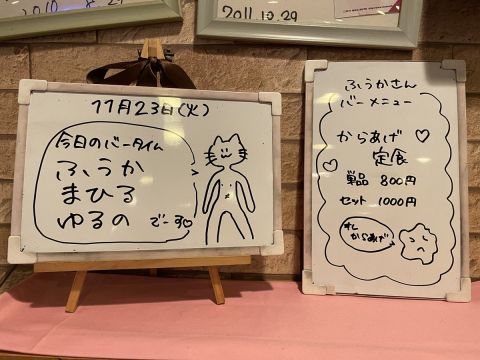 2011.10.29
11月23日(火)
今日のバータイム
ふうか
まひる
ゆるの
でーす♡
ふうかさん
バーメニュー
からあげ
定食
単品 800円
セット 1000円
オレ
からあげ